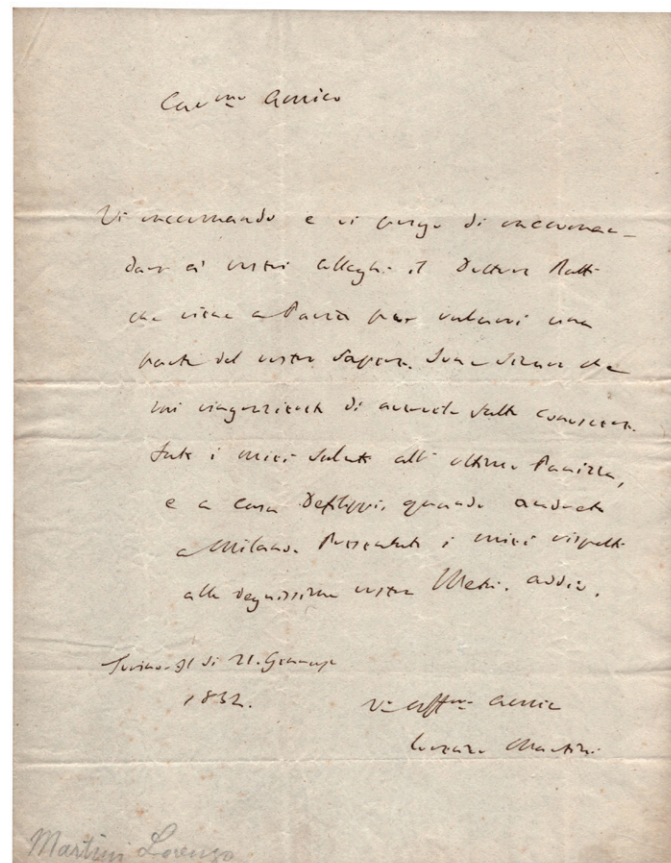 Car.mo Amico
Vi raccomando e vi prego di raccoman-
dare ai vostri colleghi il Dottore Ratti
che viene a Pavia per valersi una
parte del vostro sapere. Sono sicuro che
mi ringrazierete di avervelo fatto conoscere.
Fate i miei saluti all' ottimo Panizza,
e a casa Defilippi, quando andrete
a Milano. Presentate i miei rispetti
alla degnissima vostra Metà. Addio.
Torino di 21. Gennajo
1832.
V.o Aff.mo Amico
Lorenzo Martini
Martini Lorenzo